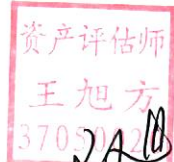 资产评估师
王旭方
37050020